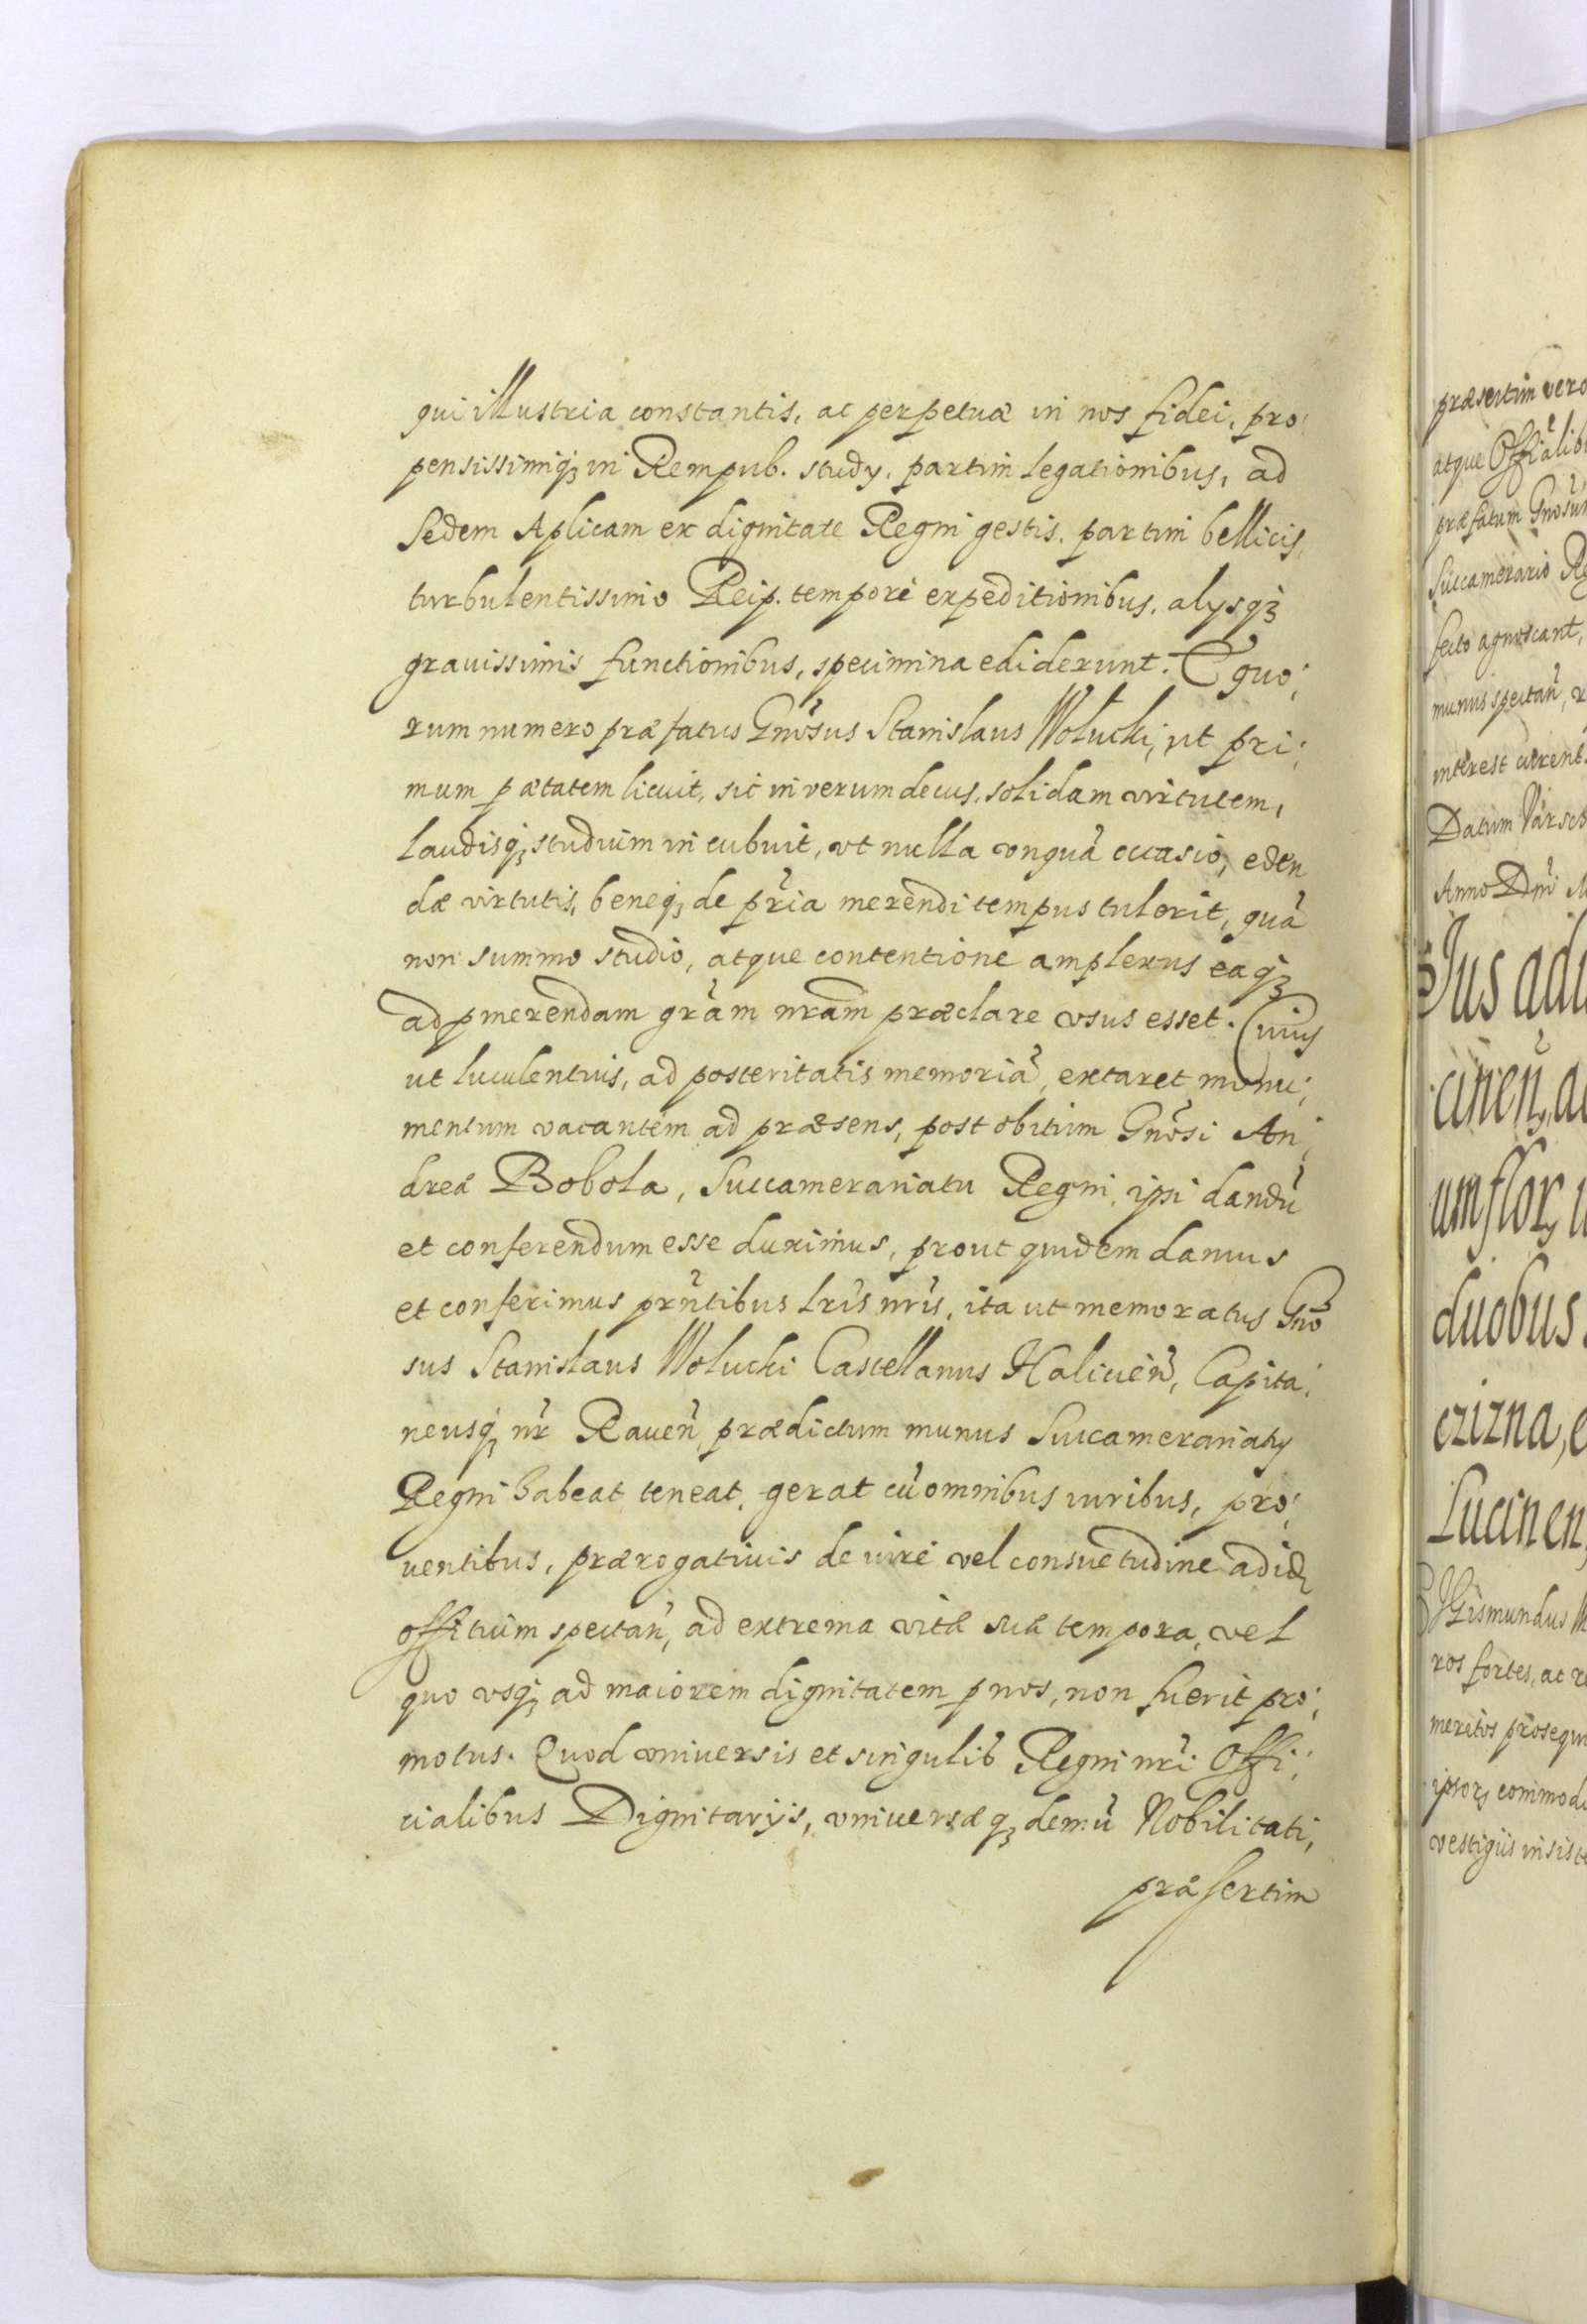 qui illustria constantis, ac perpetuæ in nos fidei, pro:
pensissimiq3 in Rempub. study, partim legationibus, ad
Sedem Aplicam ex dignitate Regni gestis, partim bellicis,
turbulentissimo Reip. tempore expeditionibus, alysq3
gravissimis functionibus, specimina ediderunt. E quo:
rum numero præfatus Gnõsus Stanislaus Wolucki, ut pri:
mum p ætatem licuit, sic in verum decus, solidam virtutem,
laudisq3 studium incubuit, ut nulla vnquã occasio, eden
dæ virtutis, beneq3 de pr̃ia merendi tempus tulerit, quã
non summo studio, atque contentione amplexus eaq3
ad pmerendam grãm nr̃am præclare vsus esset. Cuius
ut luculentius, ad posteritatis memoriã, extaret monu:
mentum vacantem ad præsens, post obitum Gnõsi An:
dreæ Bobola, Succamerariatu Regni, ipsi dandũ
et conferendum esse duximus, prout quidem damus
et conferimus prñtibus lr̃is nr̃is, ita ut memoratus Gnõ
sus Stanislaus Wolucki Castellanus Haliceñ, Capita:
neusq3 nr̃ Raveñ, prædictum munus Succamerariaty
Regni habeat teneat, gerat cũ omnibus iuribus, pro:
ventibus, prærogativis de iure vel consuetudine ad id
offitium spectañ, ad extrema vitæ suæ tempora, vel
quo vsq3 ad maiorem dignitatem p nos, non fuerit pro:
motus. Quod vniversis et singulis Regni nr̃i Offi:
cialibus Dignitarijs, vniversæq3 demũ Nobilitati,
præsertim
præsertim vero
atque Offiãlib
præfatum Gnõsu
Succamerario Re
fecto agnoscant,
munus spectañ,
interest curent.
Datum Varsch
Anno Dñi M
Jus adu
cineñ, a
um flor,
duobus
czizna, e
Lucinen,
Sigismundus
ros fortes, ac re
meritos prosequi
ipsor, commodi
vestigiis insiste